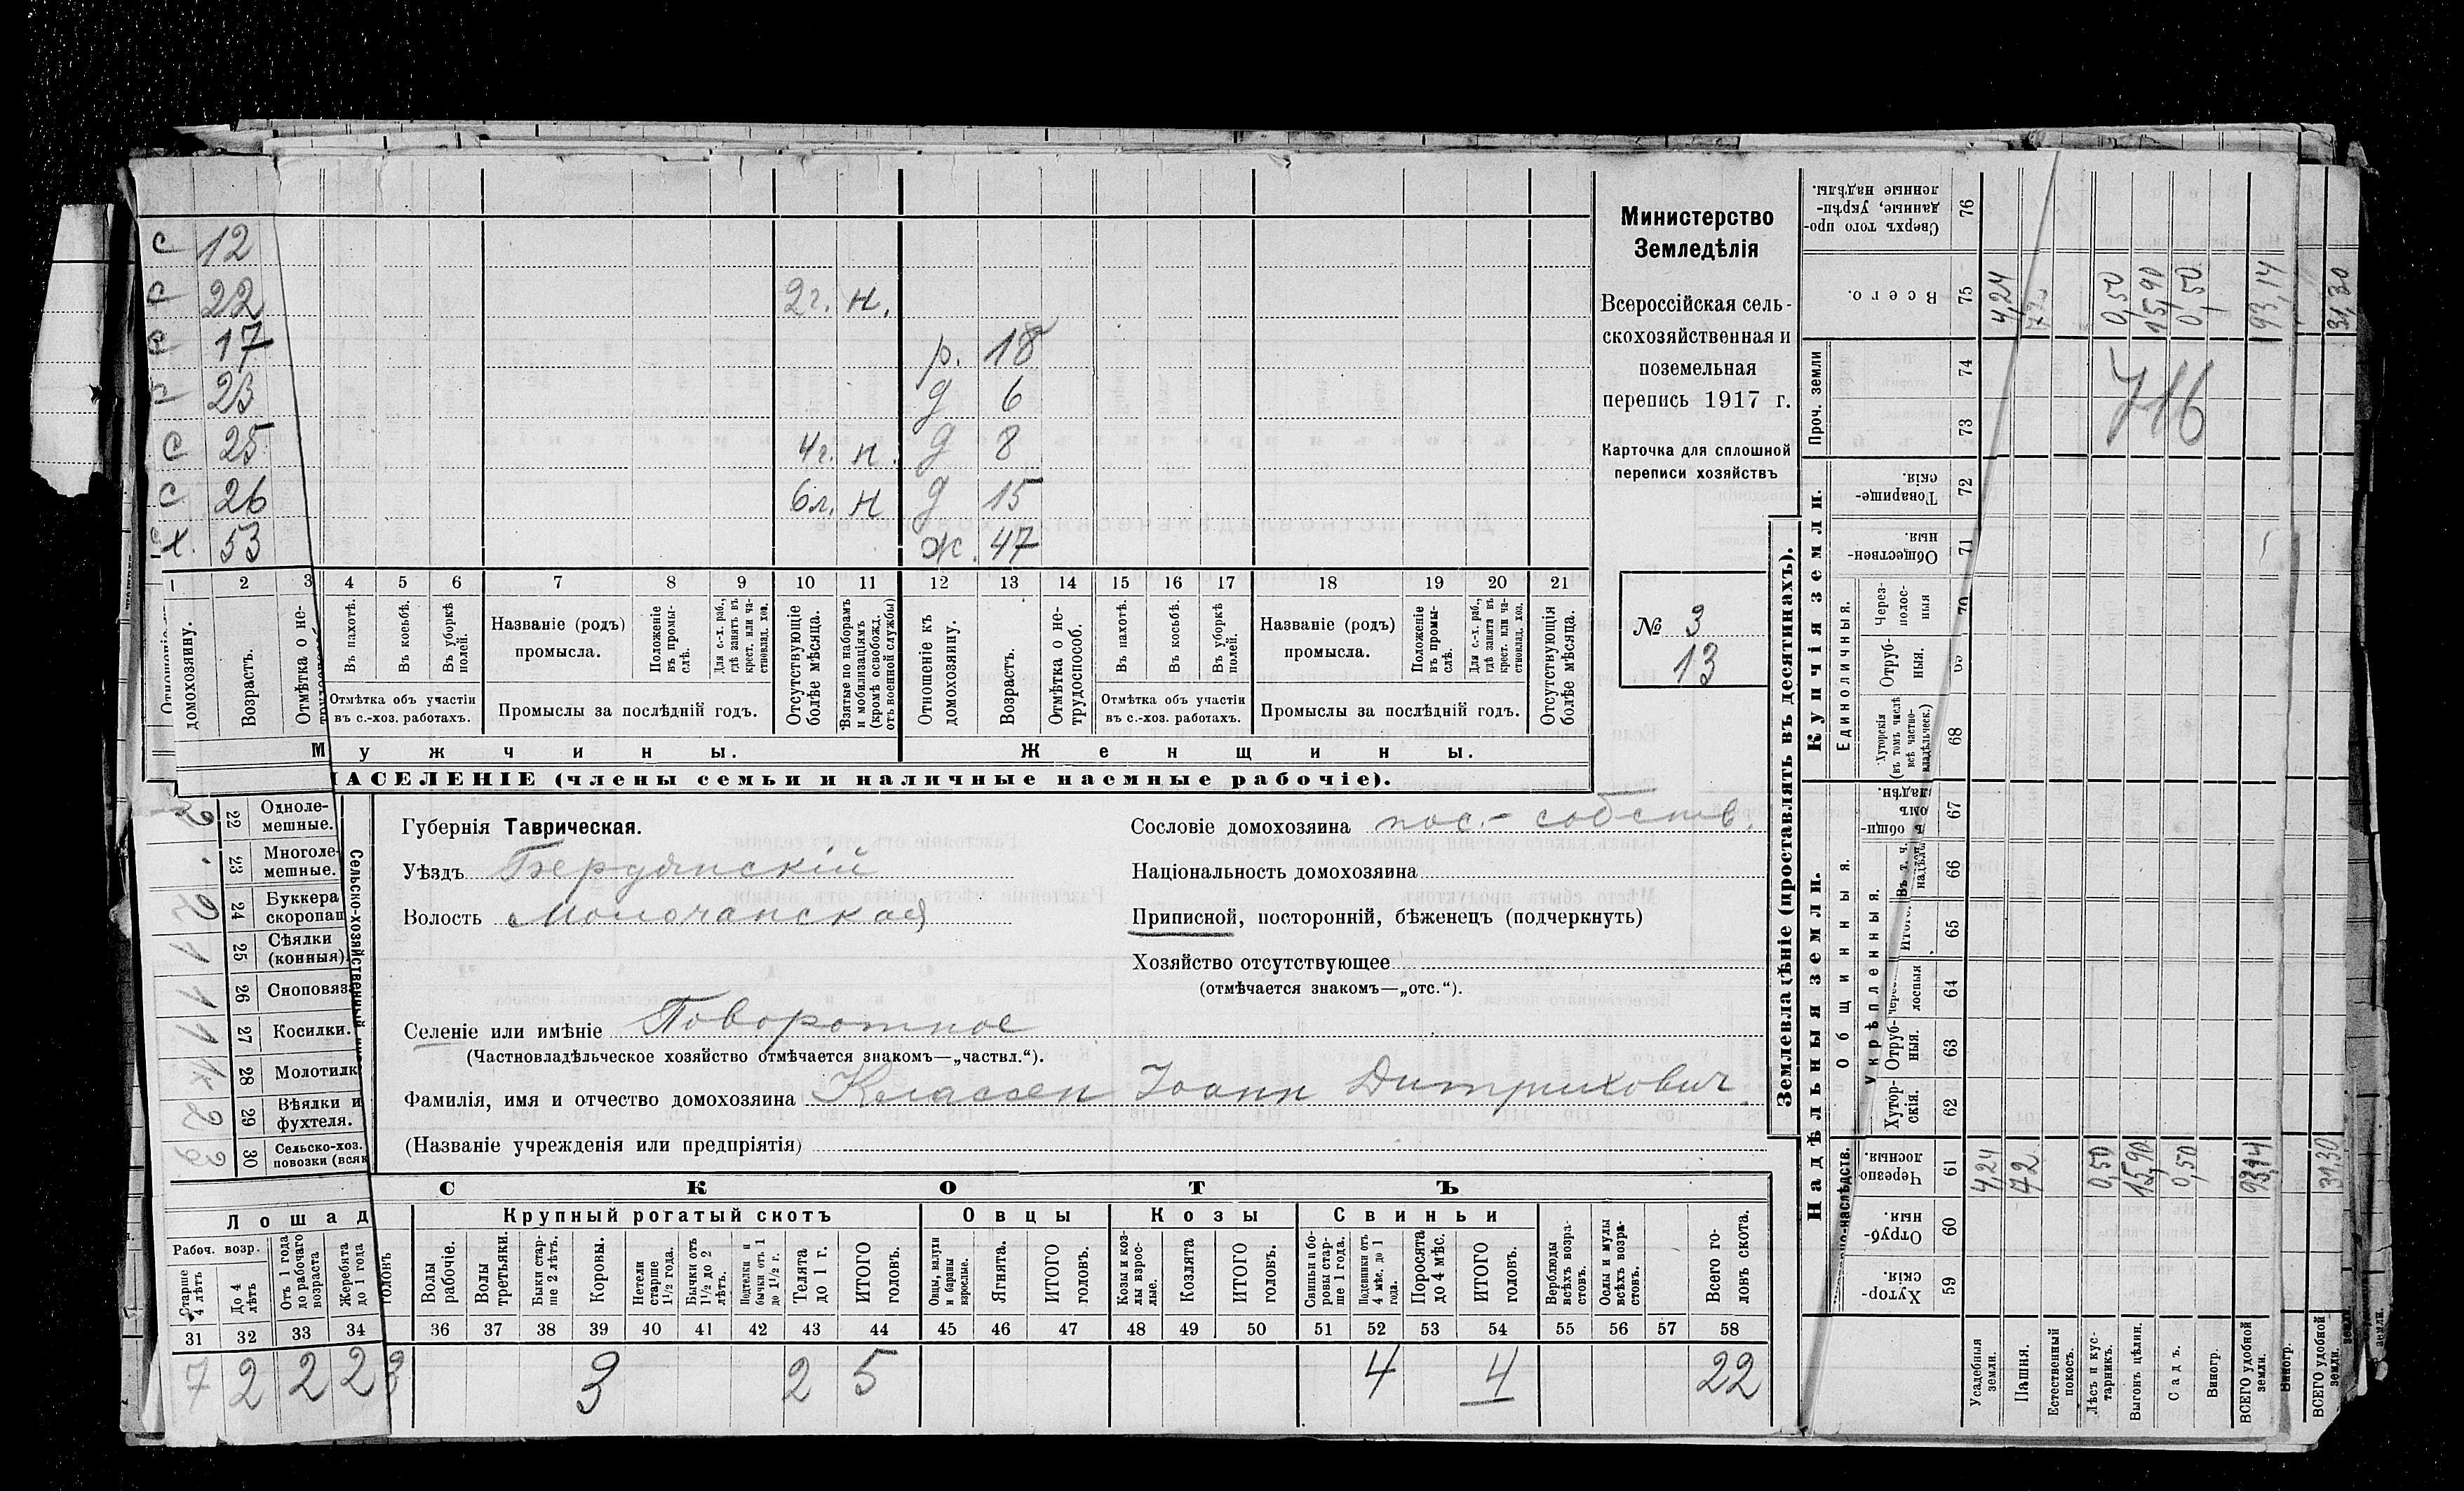 с 12
с 22 2г. н.
с 17 р. 18
с 23 д 6
с 25 4г. н. д 8
с 26 6л. н д 15
х. 53 ж. 47
1 2 3 4 5 6 7 8 9 10 11 12 13 14 15 16 17 18 19 20 21
домохозяину.
Возрастъ.
Отмѣтка о не-
Въ пахотѣ.
Въ косьбѣ.
Въ уборкѣ полей.
Отмѣтка объ участіи
въ с.-хоз. работахъ.
Названіе (родъ)
промысла.
Положеніе въ промы-
слѣ.
Для с.-х. раб., гдѣ занятъ въ крест. или ча-
ствовлад. хоз.
Промыслы за послѣдній годъ.
Отсутствующіе
болѣе мѣсяца.
Взятые по наборамъ
и мобилизаціямъ
(кромѣ освобожд.
отъ военной службы)
Отношеніе къ
домохозяину.
Возрастъ.
Отмѣтка о не-
трудоспособ.
Въ пахотѣ.
Въ косьбѣ.
Въ уборкѣ
полей.
Отмѣтка объ участіи
въ с.-хоз. работахъ.
Названіе (родъ)
промысла.
Положеніе
въ промы-
слѣ.
Для с.-х. раб.,
гдѣ занята въ
крест. или ча-
ствовлад. хоз.
Промыслы за послѣдній годъ.
Отсутствующія
болѣе мѣсяца.
Мужчины.
Женщины.
АСЕЛЕНІЕ (члены семьи и наличные наемные рабочіе).
Министерство
Земледѣлія
Всероссійская сель-
скохозяйственная и
поземельная
перепись 1917 г.
Карточка для сплошной
переписи хозяйствъ
№ 3
13
22 Одноле-
мешные.
23 Многоле-
мешные.
24 Буккера
скоропаш
25 Сѣялки
(конныя)
26 Сноповяз
27 Косилки.
28 Молотилк
29 Вѣялки и
фухтеля.
30 Сельско-хоз.
повозки (всяк
Губернія Таврическая.
Уѣздъ Бердянскій
Волость Молочанская
Селеніе или имѣніе Поворотное
(Частновладѣльческое хозяйство отмѣчается знакомъ—„частвл.“).
Фамилія, имя и отчество домохозяина Классен Іоанн Дитрихович
(Названіе учрежденія или предпріятія)
Сословіе домохозяина пос.- собств.
Національность домохозяина
Приписной, посторонній, бѣженецъ (подчеркнуть)
Хозяйство отсутствующее
(отмѣчается знакомъ—„отс.“).
СКОТЪ
Лошад
Рабоч. возр.
Старше
4 лѣтъ
До 4
лѣтъ
Отъ 1 года
до рабочаго
возраста
Жеребята
до 1 года
Крупный рогатый скотъ
Волы
рабочіе.
Волы
третьяки.
Быки стар-
ше 2 лѣтъ.
Коровы.
Нетели
старше
1½ года.
Бычки отъ
1½ до 2
лѣтъ.
Подтелки и
бычки отъ 1
до 1½ г.
Телята
до 1 г.
ИТОГО
головъ.
Овцы
Овцы, валухи
и бараны
взрослые.
Ягнята.
ИТОГО
головъ.
Козы
Козы и коз-
лы взрос-
лые.
Козлята
ИТОГО
головъ.
Свиньи
Свиньи и бо-
ровы стар-
ше 1 года.
Подсвинки отъ
4 мѣс. до 1
года.
Поросята
до 4 мѣс.
ИТОГО
головъ.
Верблюды
всѣхъ возра-
стовъ.
Ослы и мулы
всѣхъ возра-
стовъ.
Всего го-
ловъ скота.
31 32 33 34 36 37 38 39 40 41 42 43 44 45 46 47 48 49 50 51 52 53 54 55 56 57 58
7 2 2 2 3 3 2 5 4 4 22
Землевладѣніе (проставлять въ десятинахъ).
Надѣльныя земли.
Купчія земли.
Проч. земли
Общинныя.
Укрѣпленныя.
Единоличныя.
Сверхъ того про-
данные, укрѣп-
ленные надѣлы.
76
Всего.
75 4,24 0,50 15,90 0,50 93,14 31,30
74
716
73
Товарище-
скія
72
Обществен-
ныя
71
Через-
полос-
ныя
70
Отруб-
ныя.
Хуторскія
(въ томъ числѣ
всѣ частно-
владѣльческ.)
68
67
66
65
64
Отруб-
ныя.
63
Хутор-
скія.
62
Черезпо-
лосныя.
61 4,24 72 0,50 15,90 0,50 93,14 31,30
Отруб-
ныя.
60
Хутор-
скія.
59
Усадебныя
земли.
Пашня.
Естественный
покосъ.
Лѣсъ и кус-
тарникъ.
Выгонъ цѣлин.
Садъ.
Виногр.
ВСЕГО удобной
земли.
Виногр.
ВСЕГО удобной
земли.